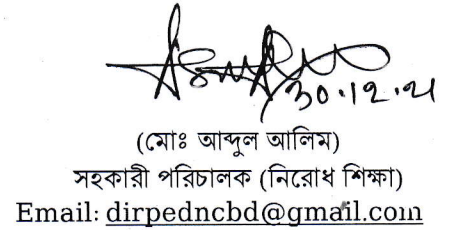 ৩০.১২.২১
(মোঃ আব্দুল আলিম)
সহকারী পরিচালক (নিরোধ শিক্ষা)
Email: dirpedncbd@gmail.com